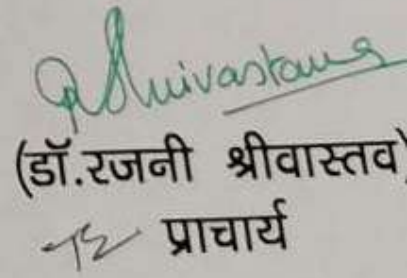 RShrivastava
(डॉ.रजनी श्रीवास्तव)
प्राचार्य